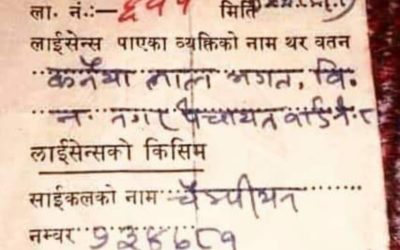 ला. नं.:- ६११ मिति
लाईसेन्स पाएका व्यक्तिको नाम थर वतन
कनैया लाल भगत, वि.
न. नगर पंचायत वार्ड नं. ८
लाईसेन्सको किसिम
साईकलको नाम चैम्पीयन
नम्बर